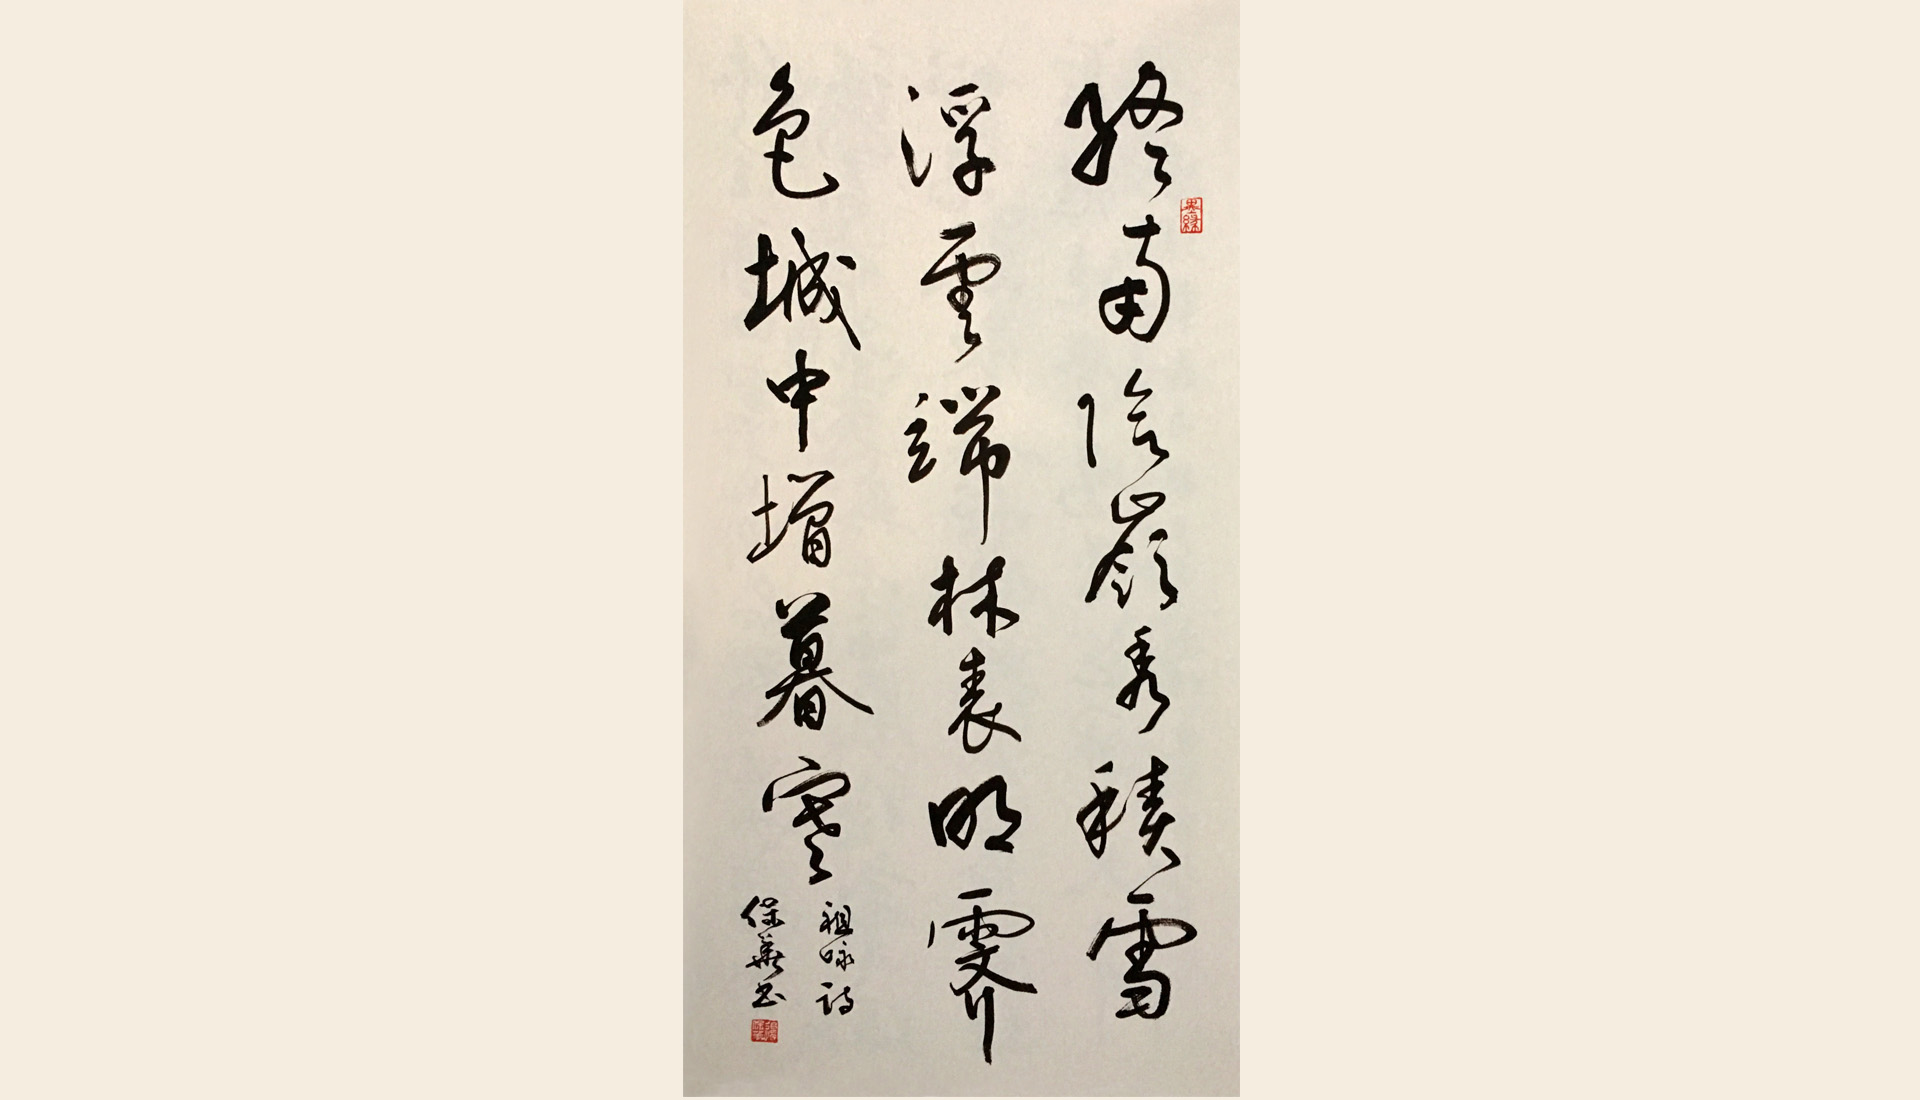 終南陰嶺秀積雪
浮雲端林表明霁
色城中增暮寒
祖咏詩
保華书
墨緣